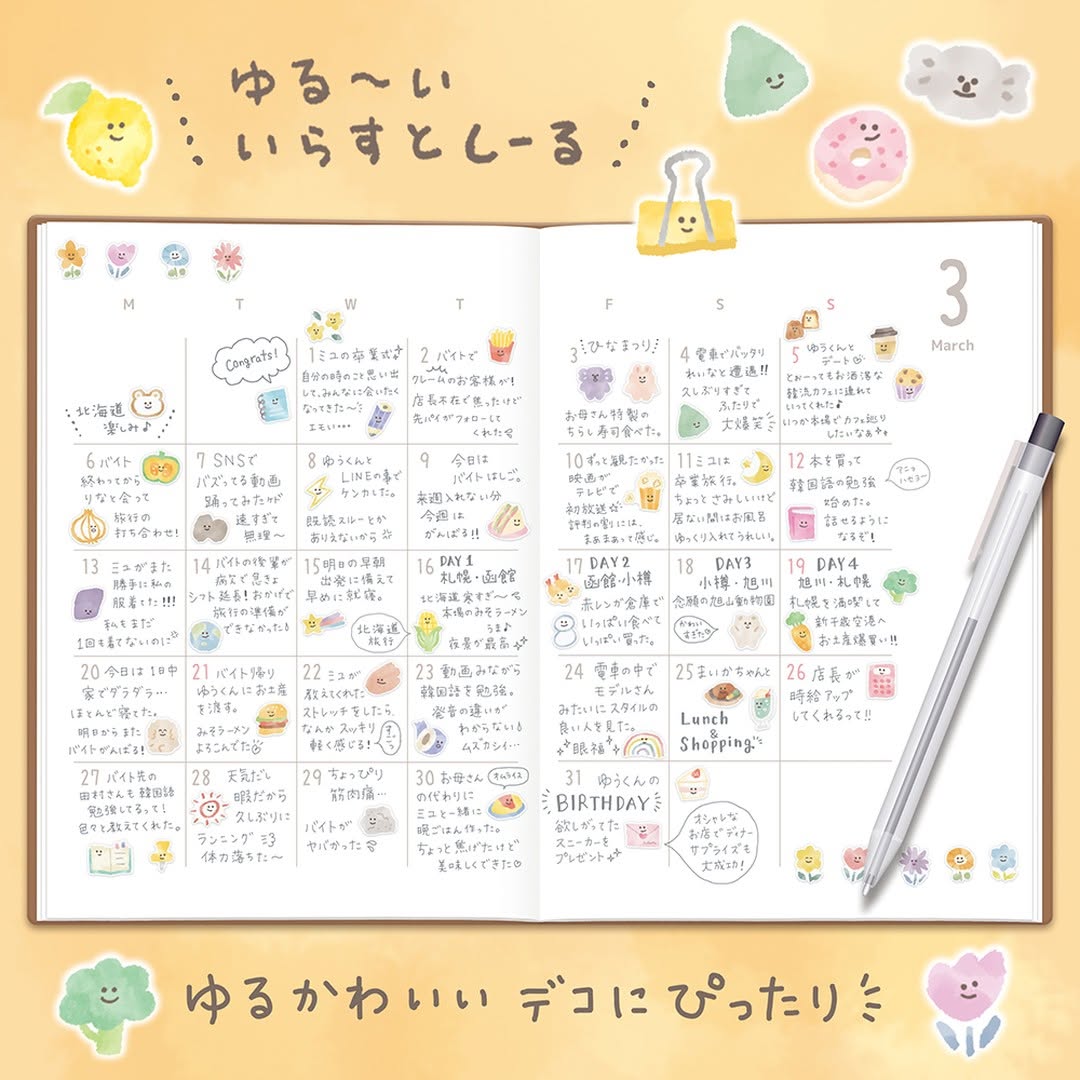 ゆる〜い
いらすとしーる
3
March
M T W T F S S
Congrats!
北海道
楽しみ♪
1 ミユの卒業式♪
自分の時のこと思い出
して、みんなに会いたく
なってきた〜
エモい…
2 バイトで
クレームのお客様が!
店長不在で焦ったけど
先パイがフォローして
くれた
3 ひなまつり
お母さん特製の
ちらし寿司食べた。
4 電車でバッタリ
れいなと遭遇!!
久しぶりすぎて
ふたりで
大爆笑
5 ゆうくんと
デート
とぉーってもお洒落な
韓流カフェに連れて
いってくれた♪
いつか本場でカフェ巡り
したいなぁ
6 バイト
終わってから
りなと会って
旅行の
打ち合わせ!
7 SNSで
バズってる動画
踊ってみたケド
速すぎて
無理〜
8 ゆうくんと
LINEの事で
ケンカした。
既読スルーとか
ありえないから
9 今日は
バイトはしご。
来週入れない分
今週は
がんばる!!
10 ずっと観たかった
映画が
テレビで
初放送☆
評判の割には、
まぁまぁって感じ。
11 ミユは
卒業旅行。
ちょっとさみしいけど
居ない間はお風呂
ゆっくり入れてうれしい。
12 本を買って
韓国語の勉強
始めた。
話せるように
なるぞ!
アニョ
ハセヨー
13 ミユがまた
勝手に私の
服着てた!!!
私もまだ
1回も着てないのに
14 バイトの後輩が
病欠で急きょ
シフト延長!おかげで
旅行の準備が
できなかった
15 明日の早朝
出発に備えて
早めに就寝。
北海道
旅行
16 DAY1
札幌・函館
北海道寒すぎ〜
本場のみそラーメン
うま♪
夜景が最高
17 DAY2
函館・小樽
赤レンガ倉庫で
いっぱい食べて
いっぱい買った。
18 DAY3
小樽・旭川
念願の旭山動物園
かわい
すぎた
19 DAY4
旭川・札幌
札幌を満喫して
新千歳空港へ
お土産爆買い!!
20 今日は1日中
家でダラダラ…
ほとんど寝てた。
明日からまた
バイトがんばる!
21 バイト帰り
ゆうくんにお土産
を渡す。
みそラーメン
よろこんでた
22 ミユが
教えてくれた
ストレッチをしたら、
なんかスッキリ
軽く感じる!
23 動画みながら
韓国語を勉強。
発音の違いが
わからない
ムズカシイ…
24 電車の中で
モデルさん
みたいにスタイルの
良い人を見た。
眼福
25 まいかちゃんと
Lunch
&
Shopping
26 店長が
時給アップ
してくれるって!!
27 バイト先の
田村さんも韓国語
勉強してるって!
色々と教えてくれた。
28 天気だし
暇だから
久しぶりに
ランニング
体力落ちた〜
29 ちょっぴり
筋肉痛…
バイトが
ヤバかった
30 お母さん
の代わりに
ミユと一緒に
晩ごはん作った。
ちょっと焦げたけど
美味しくできた♡
オムライス
31 ゆうくんの
BIRTHDAY
欲しがってた
スニーカーを
プレゼント
オシャレな
お店でディナー
サプライズも
大成功!
ゆるかわいいデコにぴったり